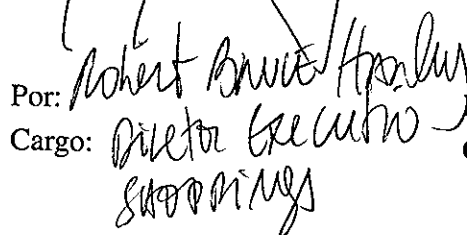 Por: Robert Bruce
Cargo: Diretor Executivo
Shoppings